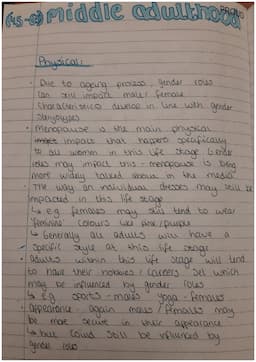 (45-65) middle adulthood
Physical:
· Due to ageing process, gender roles
can still impact male / female
characteristics develop in line with gender
stereotypes
· Menopause is the main physical
impact that happens specifically
to all women in this life stage. Gender
roles may impact this - menopause is being
more widely talked about in the media
· The way an individual dresses may still be
impacted in this life stage
↳ e.g females may still tend to wear
'feminine' colours like pink/purple
↳ Generally all adults will have a
specific style at this life stage
· adults within this life stage will tend
to have their hobbies / careers set which
may be influenced by gender roles
↳ e.g sports - males yoga - females
appearance - again males / females may
be more secure in their appearance
↳ but could still be influenced by
gender roles